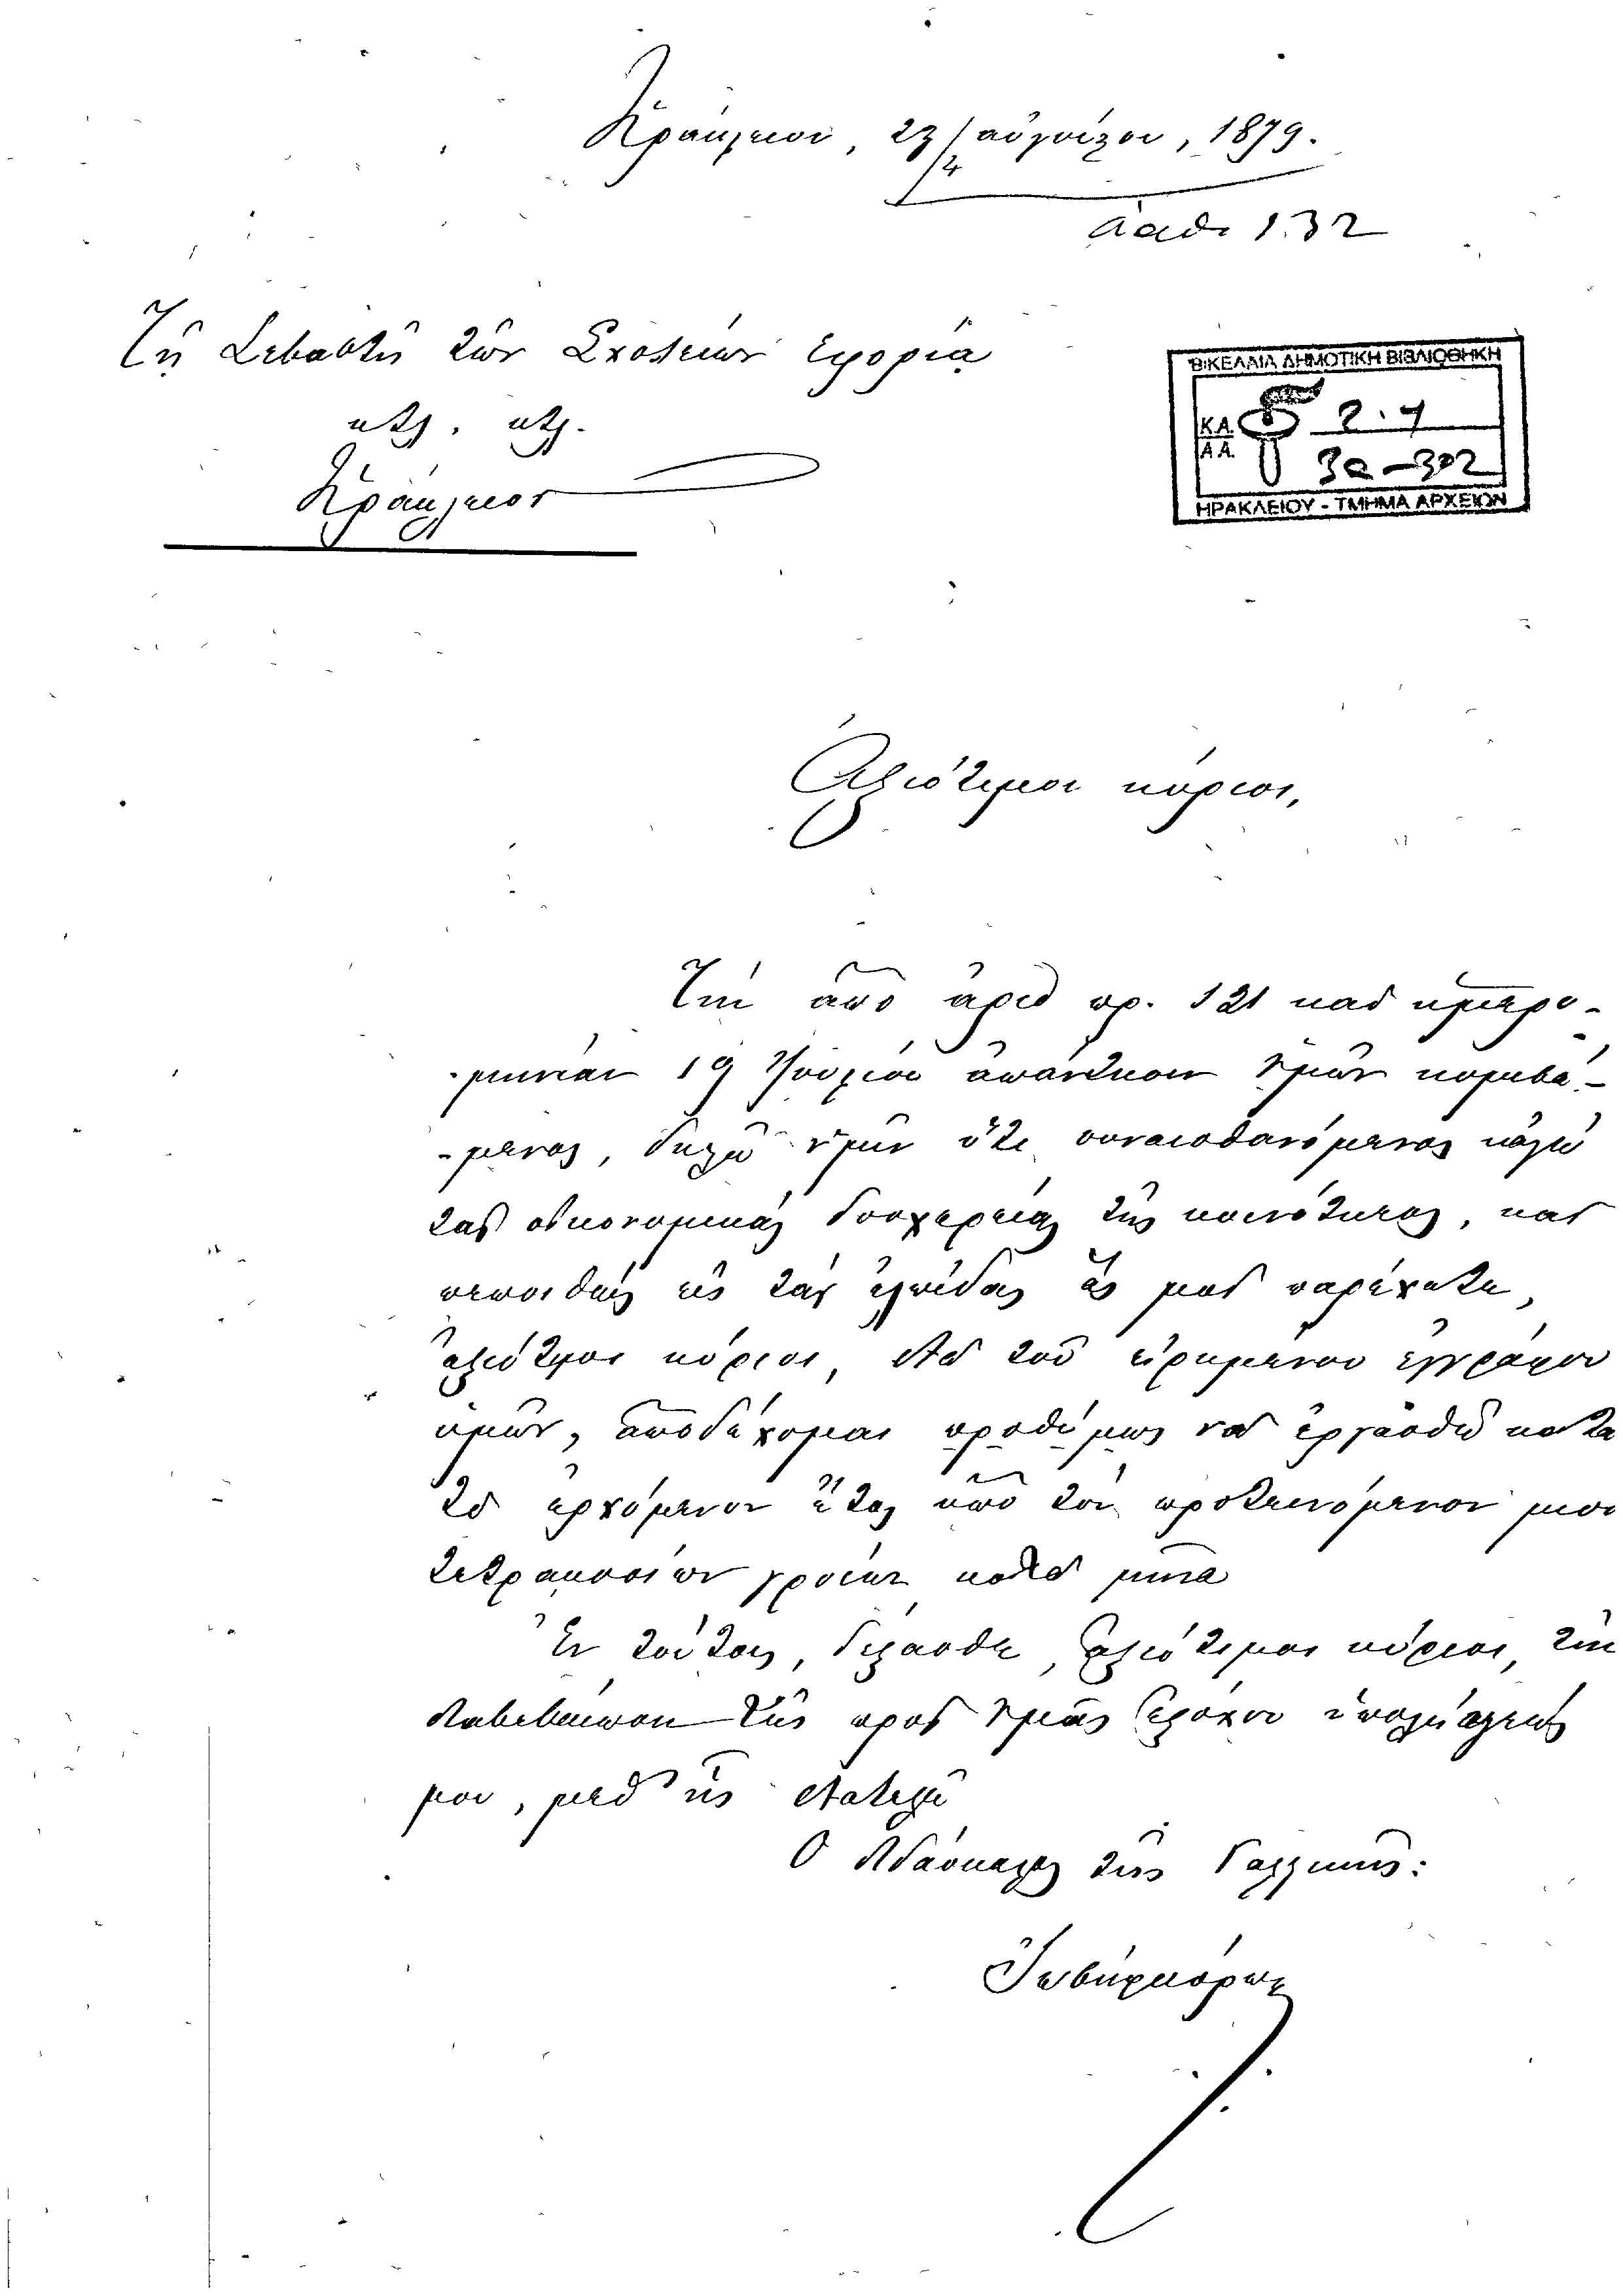 Ἡράκλειον, 23/4 αὐγούστου, 1879.
ἀριθ. 132
Τῇ Σεβαστῇ τῶν Σχολείων Ἐφορίᾳ
κτλ. κτλ.
Ἡράκλειον
ΒΙΚΕΛΑΙΑ ΔΗΜΟΤΙΚΗ ΒΙΒΛΙΟΘΗΚΗ
Κ.Α. 2.4
Α.Α. 30-302
ΗΡΑΚΛΕΙΟΥ - ΤΜΗΜΑ ΑΡΧΕΙΩΝ
Ἀξιότιμοι κύριοι,
Τὴν ἀπὸ ἀριθ πρ. 121 καὶ ἡμερο-
-μηνίαν 19 Ἰουλίου ἀπάντησιν ὑμῶν κομισά-
-μενος, δηλῶ ὑμῖν ὅτι συναισθανόμενος κἀγὼ
τὰς οἰκονομικὰς δυσχερείας τῆς κοινότητος, καὶ
πεποιθὼς εἰς τὰς ἐλπίδας ἃς μοὶ παρέχετε,
ἀξιότιμοι κύριοι, διὰ τοῦ εἰρημένου ἐγγράφου
ὑμῶν, ἀποδέχομαι προθύμως νὰ ἐργασθῶ κατὰ
τὸ ἐρχόμενον ἔτος ὑπὸ τὸν προτεινόμενόν μοι
τετρακοσίων γροσίων κατὰ μῆνα
Ἐν τούτοις, δέξασθε, ἀξιότιμοι κύριοι, τὴν
διαβεβαίωσιν τῆς πρὸς ὑμᾶς ἐξόχου ὑπολήψεώς
μου, μεθ' ἧς διατελῶ
Ὁ διδάσκαλος τῆς Γαλλικῆς: